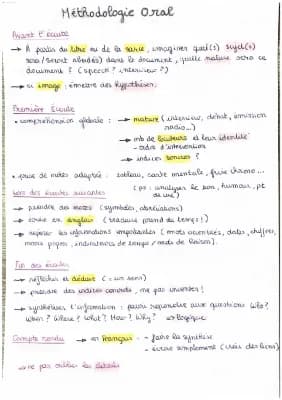 Méthodologie Oral
Avant l'écoute
→ A partir du titre ou de la varié, imaginer quel(s) sujet(s)
sera/seront abordés dans le document, quelle nature sera ce
document ? (speech ? interview ?)
→ si image : émettre des hypothèses.
Première Ecoute
• compréhension globale : → nature (interview, débat, émission
radio...)
→ nb de locuteurs et leur identité
- cadre d'intervention
→ indices sonores ?
• prise de notes adaptée : tableau, carte mentale, frise chrono...
(ps : analyser le son, humour, pt
de vue)
Lors des écoutes suivantes
→ prendre des notes (symboles, abréviations)
→ écrire en anglais (traduire prend du temps !)
→ repérer les informations importantes (mots accentués, dates, chiffres,
noms propres, indicateurs de temps / mots de liaison).
Fin des écoutes
→ réfléchir et déduire (= un sens)
→ prendre des indices concrets, ne pas inventer !
→ synthétiser l'information : pouvoir répondre aux questions Who ?
When ? Where ? What ? How ? Why ? → logique
Compte rendu → en français - faire la synthèse
- écrire simplement (créer des liens)
→ ne pas oublier les détails